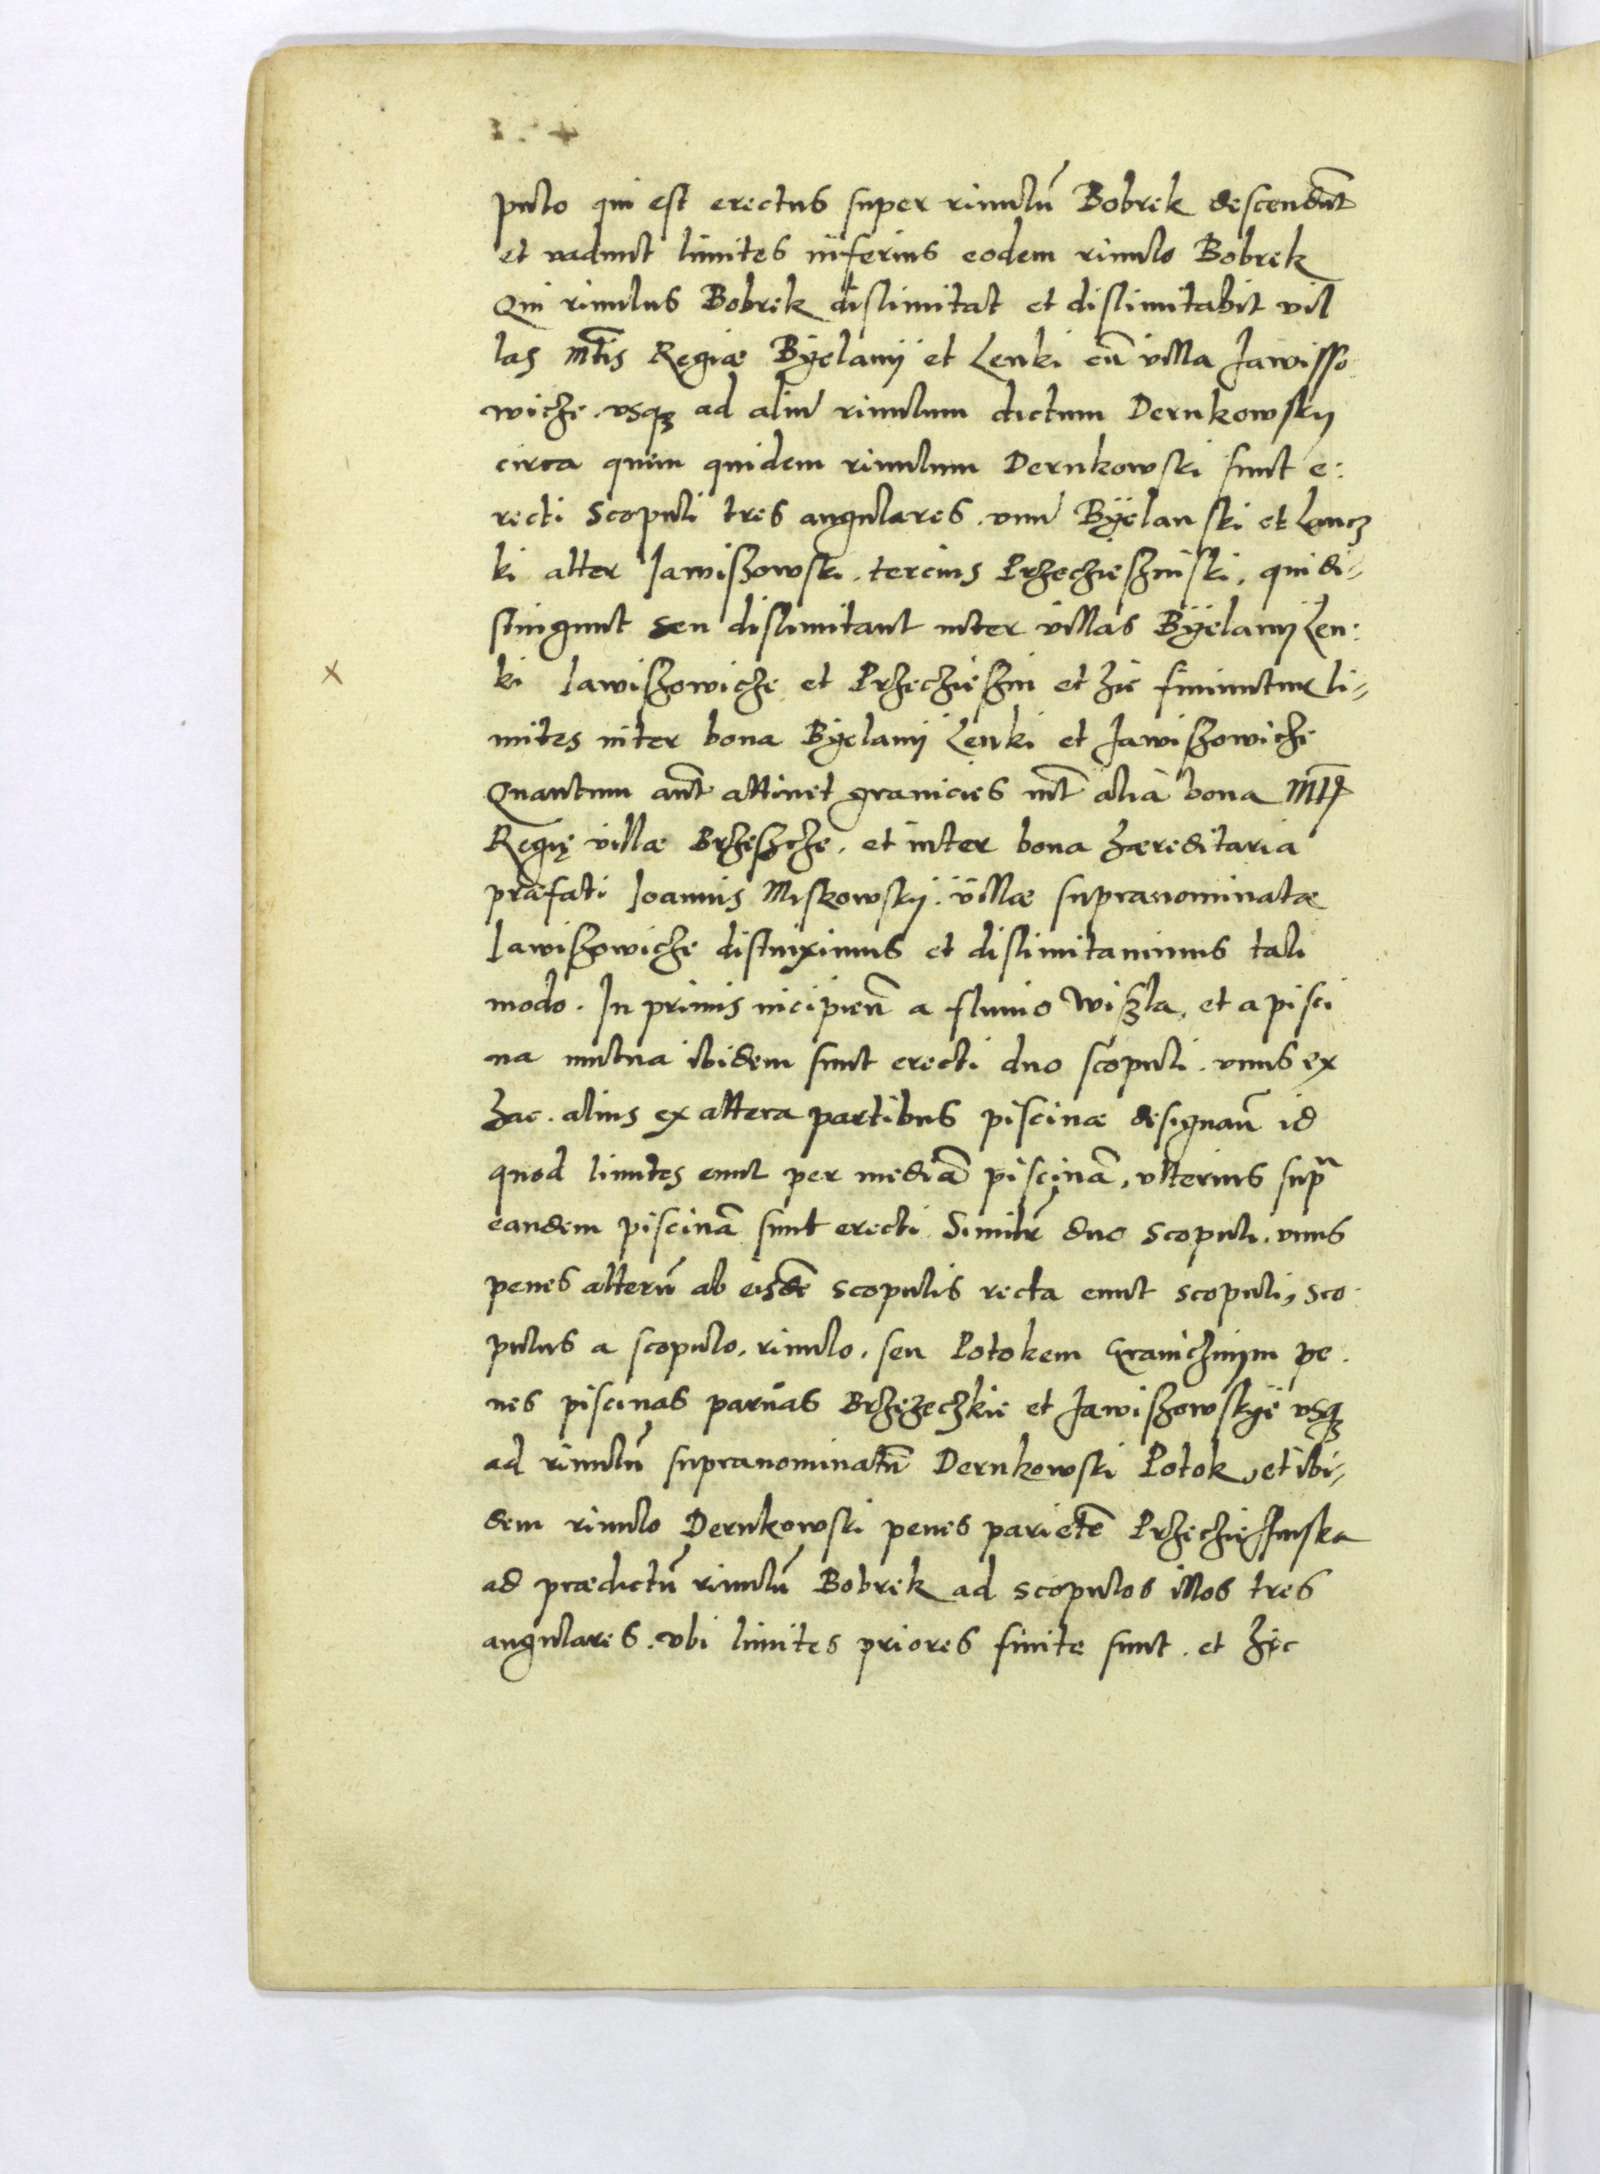 pulo qui est erectus super riuulũ Bobrek descendũt
et vadunt limites inferius eodem riuulo Bobrek
Qui riuulus Bobrek dislimitat et dislimitabit vil
las Mt̃is Regiæ Byelanij et Lenki cũ villa Jawisso
wicze. vsqꝫ ad aliũ riuulum dictum Dernkowskij
circa quem quidem riuulum Dernkowski sunt e:
recti Scopuli tres angulares. vnũ Byelanski et Lencz
ki alter Jawiszowski. tercius Przeczieszinski, qui di-
stingunt seu dislimitant inter villas Byelanij Len:
ki Jawiszowicze et Przeczieszin et hic finiuntur li-
mites inter bona Byelanij Lenki et Jawiszowicze
Quantum aũt attinet granicies int̃ alia bona Mt̃
Regię villæ Brzeszcze, et inter bona hæreditaria
præfati Joannis Miskowskij. villæ supranominatæ
Jawiszowicze distinximus et dislimitauimus tali
modo. In primis incipieñ a fluuio Wiszla, et a pisci
na mutua ibidem sunt erecti duo scopuli. vnus ex
hac. alius ex altera partibus piscinæ designañ id
quod limites eunt per mediã piscinã, vlterius supra
eandem piscinã sunt erecti Similr̃ duo Scopuli. vnus
penes alterũ ab eisdẽ scopulis recta eunt scopuli, sco
pulus a scopulo, riuulo, seu Potokem Granicznijm pe
nes piscinas paruas Brzezeczkie et Jawiszowskye vsqꝫ
ad riuulũ supranominatũ Dernkowski Potok, et ibi-
dem riuulo Dernkowski penes parietẽ Przecziessinska
ad prædictũ riuulũ Bobrek ad scopulos illos tres
angulares. vbi limites priores finite sunt. et hic